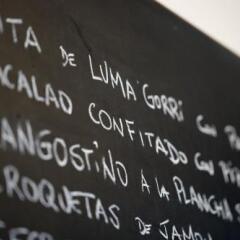 ITA DE LUMA GORRI CON P
ACALAO CONFITADO CON PI
ANGOSTINO A LA PLANCHA
ROQUETAS DE JAM